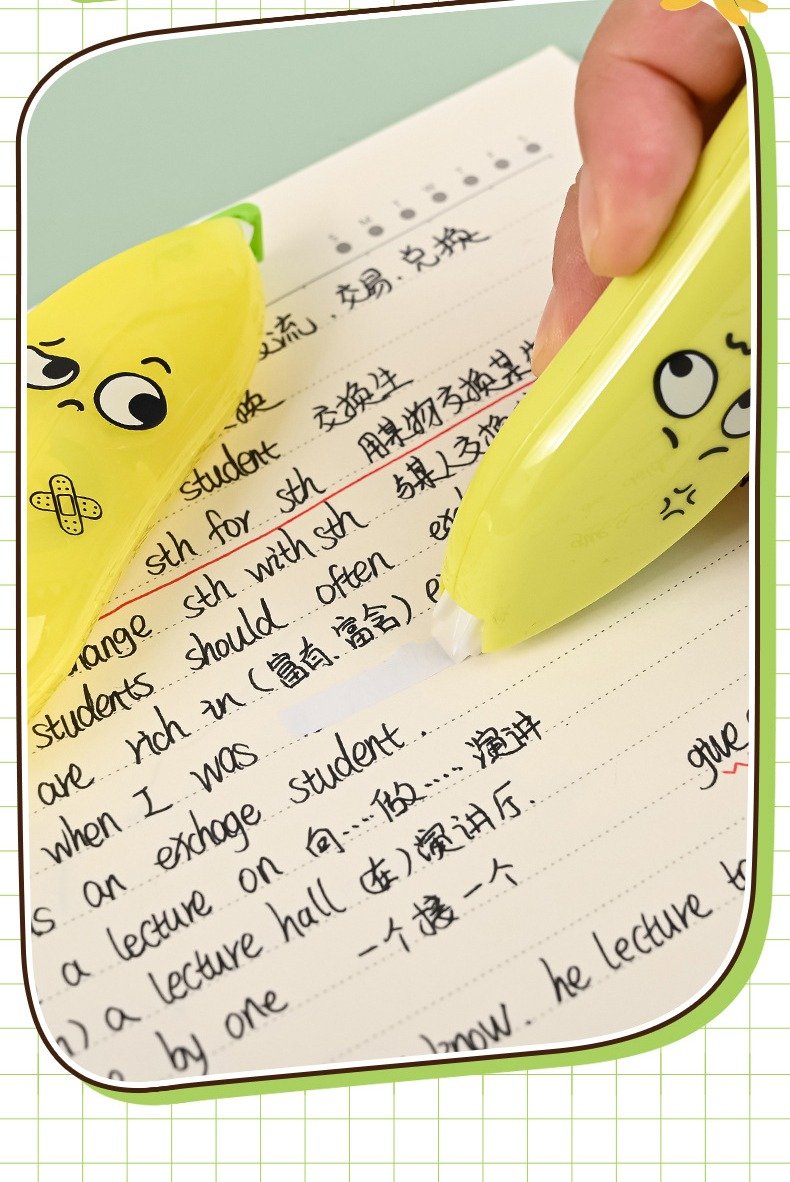 S M T W T F S
流.交易.兑换
换
student 交换生
sth for sth 用某物交换某
change sth with sth 与某人交换
students should often
are rich in (富有.富含)
when I was
as an exchage student.
a lecture on 向…做…. 演讲
give
) a lecture hall (在)演讲厅.
by one 一个接一个
know. he lecture